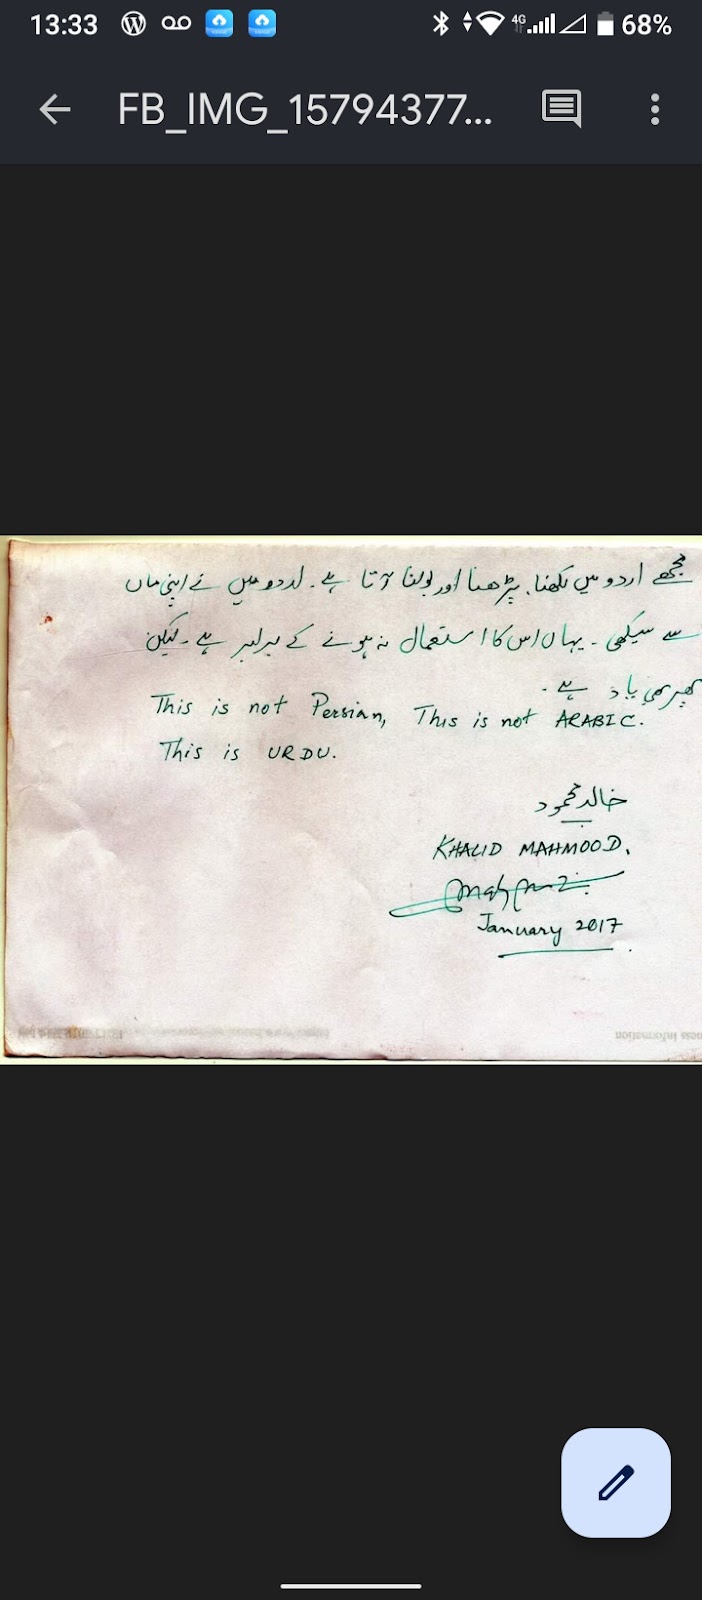 13:33 4G 68%
FB_IMG_15794377...
مجھے اردو میں لکھنا، پڑھنا اور بولنا آتا ہے۔ اردو میں نے اپنی ماں
سے سیکھی۔ یہاں اس کا استعمال نہ ہونے کے برابر ہے۔ لیکن
پھر بھی یاد ہے۔
This is not Persian, This is not ARABIC.
This is URDU.
خالد محمود
KHALID MAHMOOD.
January 2017